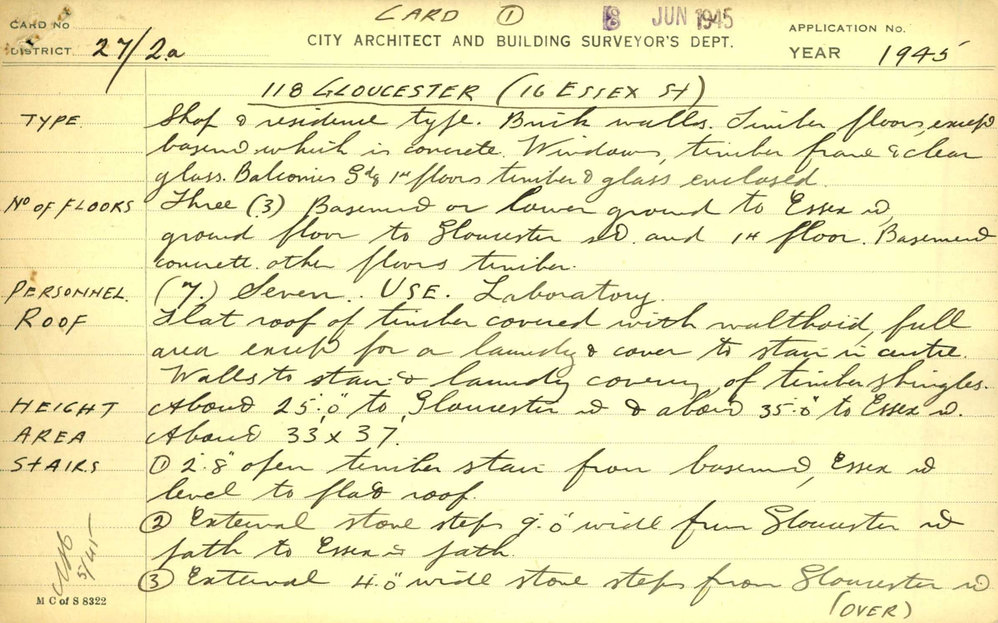 CARD ①
8 JUN 1945
CARD NO
DISTRICT 27/2a
CITY ARCHITECT AND BUILDING SURVEYOR'S DEPT.
APPLICATION No.
YEAR 1945
118 GLOUCESTER (16 ESSEX St)
TYPE Shop & residence type. Brick walls. Timber floors, except
basemt which is concrete. Windows, timber frame & clear
glass. Balconies Gd & 1st floors timber & glass enclosed.
No OF FLOORS Three (3) Basement or lower ground to Essex St,
ground floor to Gloucester St. and 1st floor. Basement
concrete. other floors timber.
PERSONNEL. (7.) Seven. USE. Laboratory.
ROOF Flat roof of timber covered with malthoid, full
area except for a laundry & cover to stair in centre.
Walls to stair & laundry covering of timber shingles.
HEIGHT About 25'.0" to Gloucester St & about 35'.0" to Essex St.
AREA About 33' x 37'.
STAIRS ① 2'.8" open timber stair from basement, Essex St
level to flat roof.
② External stone steps 9'.0" wide from Gloucester St
path to Essex St path.
③ External 4'.0" wide stone steps from Gloucester St
(OVER)
5/45
M C of S 8322